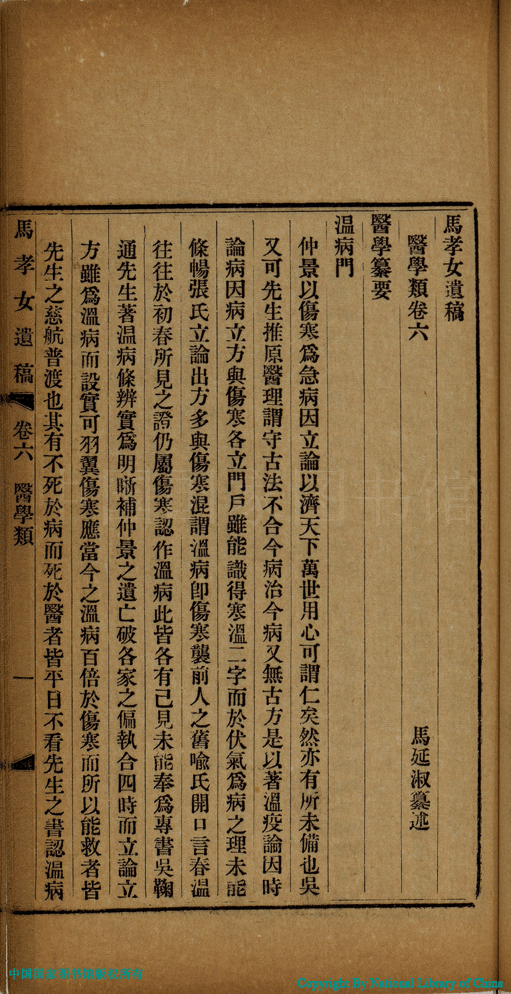 馬孝女遺稿
醫學類卷六
馬延淑纂述
醫學纂要
溫病門
仲景以傷寒為急病因立論以濟天下萬世用心可謂仁矣然亦有所未備也吳
又可先生推原醫理謂守古法不合今病治今病又無古方是以著溫疫論因時
論病因病立方與傷寒各立門戶雖能識得寒溫二字而於伏氣為病之理未能
條暢張氏立論出方多與傷寒混謂溫病即傷寒襲前人之舊喻氏開口言春溫
往往於初春所見之證仍屬傷寒認作溫病此皆各有己見未能奉為專書吳鞠
通先生著溫病條辨實為明晰補仲景之遺亡破各家之偏執合四時而立論立
方雖為溫病而設實可羽翼傷寒應當今之溫病百倍於傷寒而所以能救者皆
先生之慈航普渡也其有不死於病而死於醫者皆平日不看先生之書認溫病
馬孝女遺稿
卷六 醫學類
一
中国国家图书馆版权所有
Copyright By National Library of China